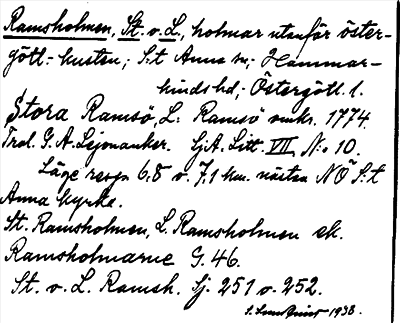 Ramsholmen, St. o. L., holmar utanför öster-
götl.-kusten; S:t Anna sn; Hammar-
kinds hd; Östergötl. l.
Stora Ramsö, L: Ramsö omkr. 1774.
Trol. G. A. Lejonanker. SjA. Litt. VII, N:o 10.
Läge resp. 6.8 o. 7.1 km. nästan NÖ S:t
Anna kyrka.
St. Ramsholmen, L. Ramsholmen ek.
Ramsholmarne G. 46.
St. o. L. Ramsh. Sj. 251 o. 252.
1938.